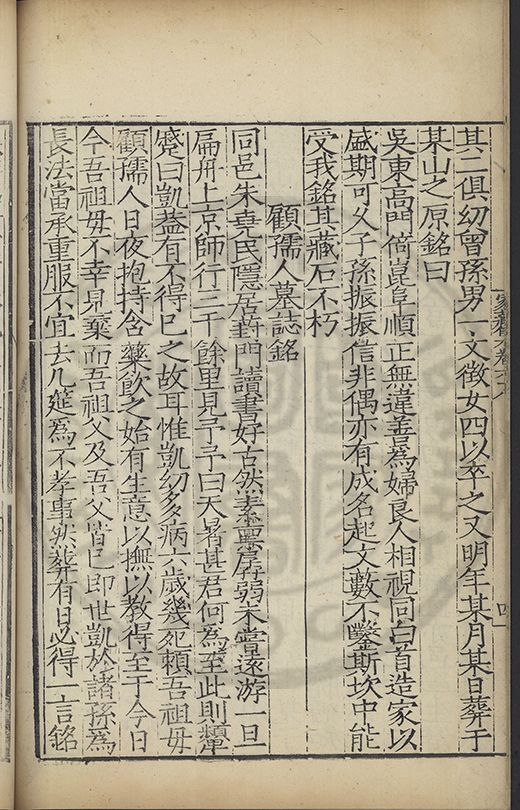 其二俱幼曾孫男一文徵女四以卒之又明年某月某日葬于
某山之原銘曰
吳東高門倚崑阜順正無違善爲婦良人相視同白首造家以
盛期可久子孫振振信非偶亦有成名起文數不鑿斯坎中能
受我銘其藏石不朽
顧孺人墓誌銘
同邑朱堯民隱居葑門讀書好古然素羸孱弱未嘗遠游一旦
扁舟上京師行三千餘里見予予曰天暑甚君何爲至此則顰
蹙曰凱葢有不得已之故耳惟凱幼多病六歲幾死賴吾祖母
顧孺人日夜抱持含藥飲之始有生意以撫以教得至于今日
今吾祖母不幸見棄而吾祖父及吾父皆已即世凱於諸孫爲
長法當承重服不宜去几筵爲不孝事然葬有日必得一言銘